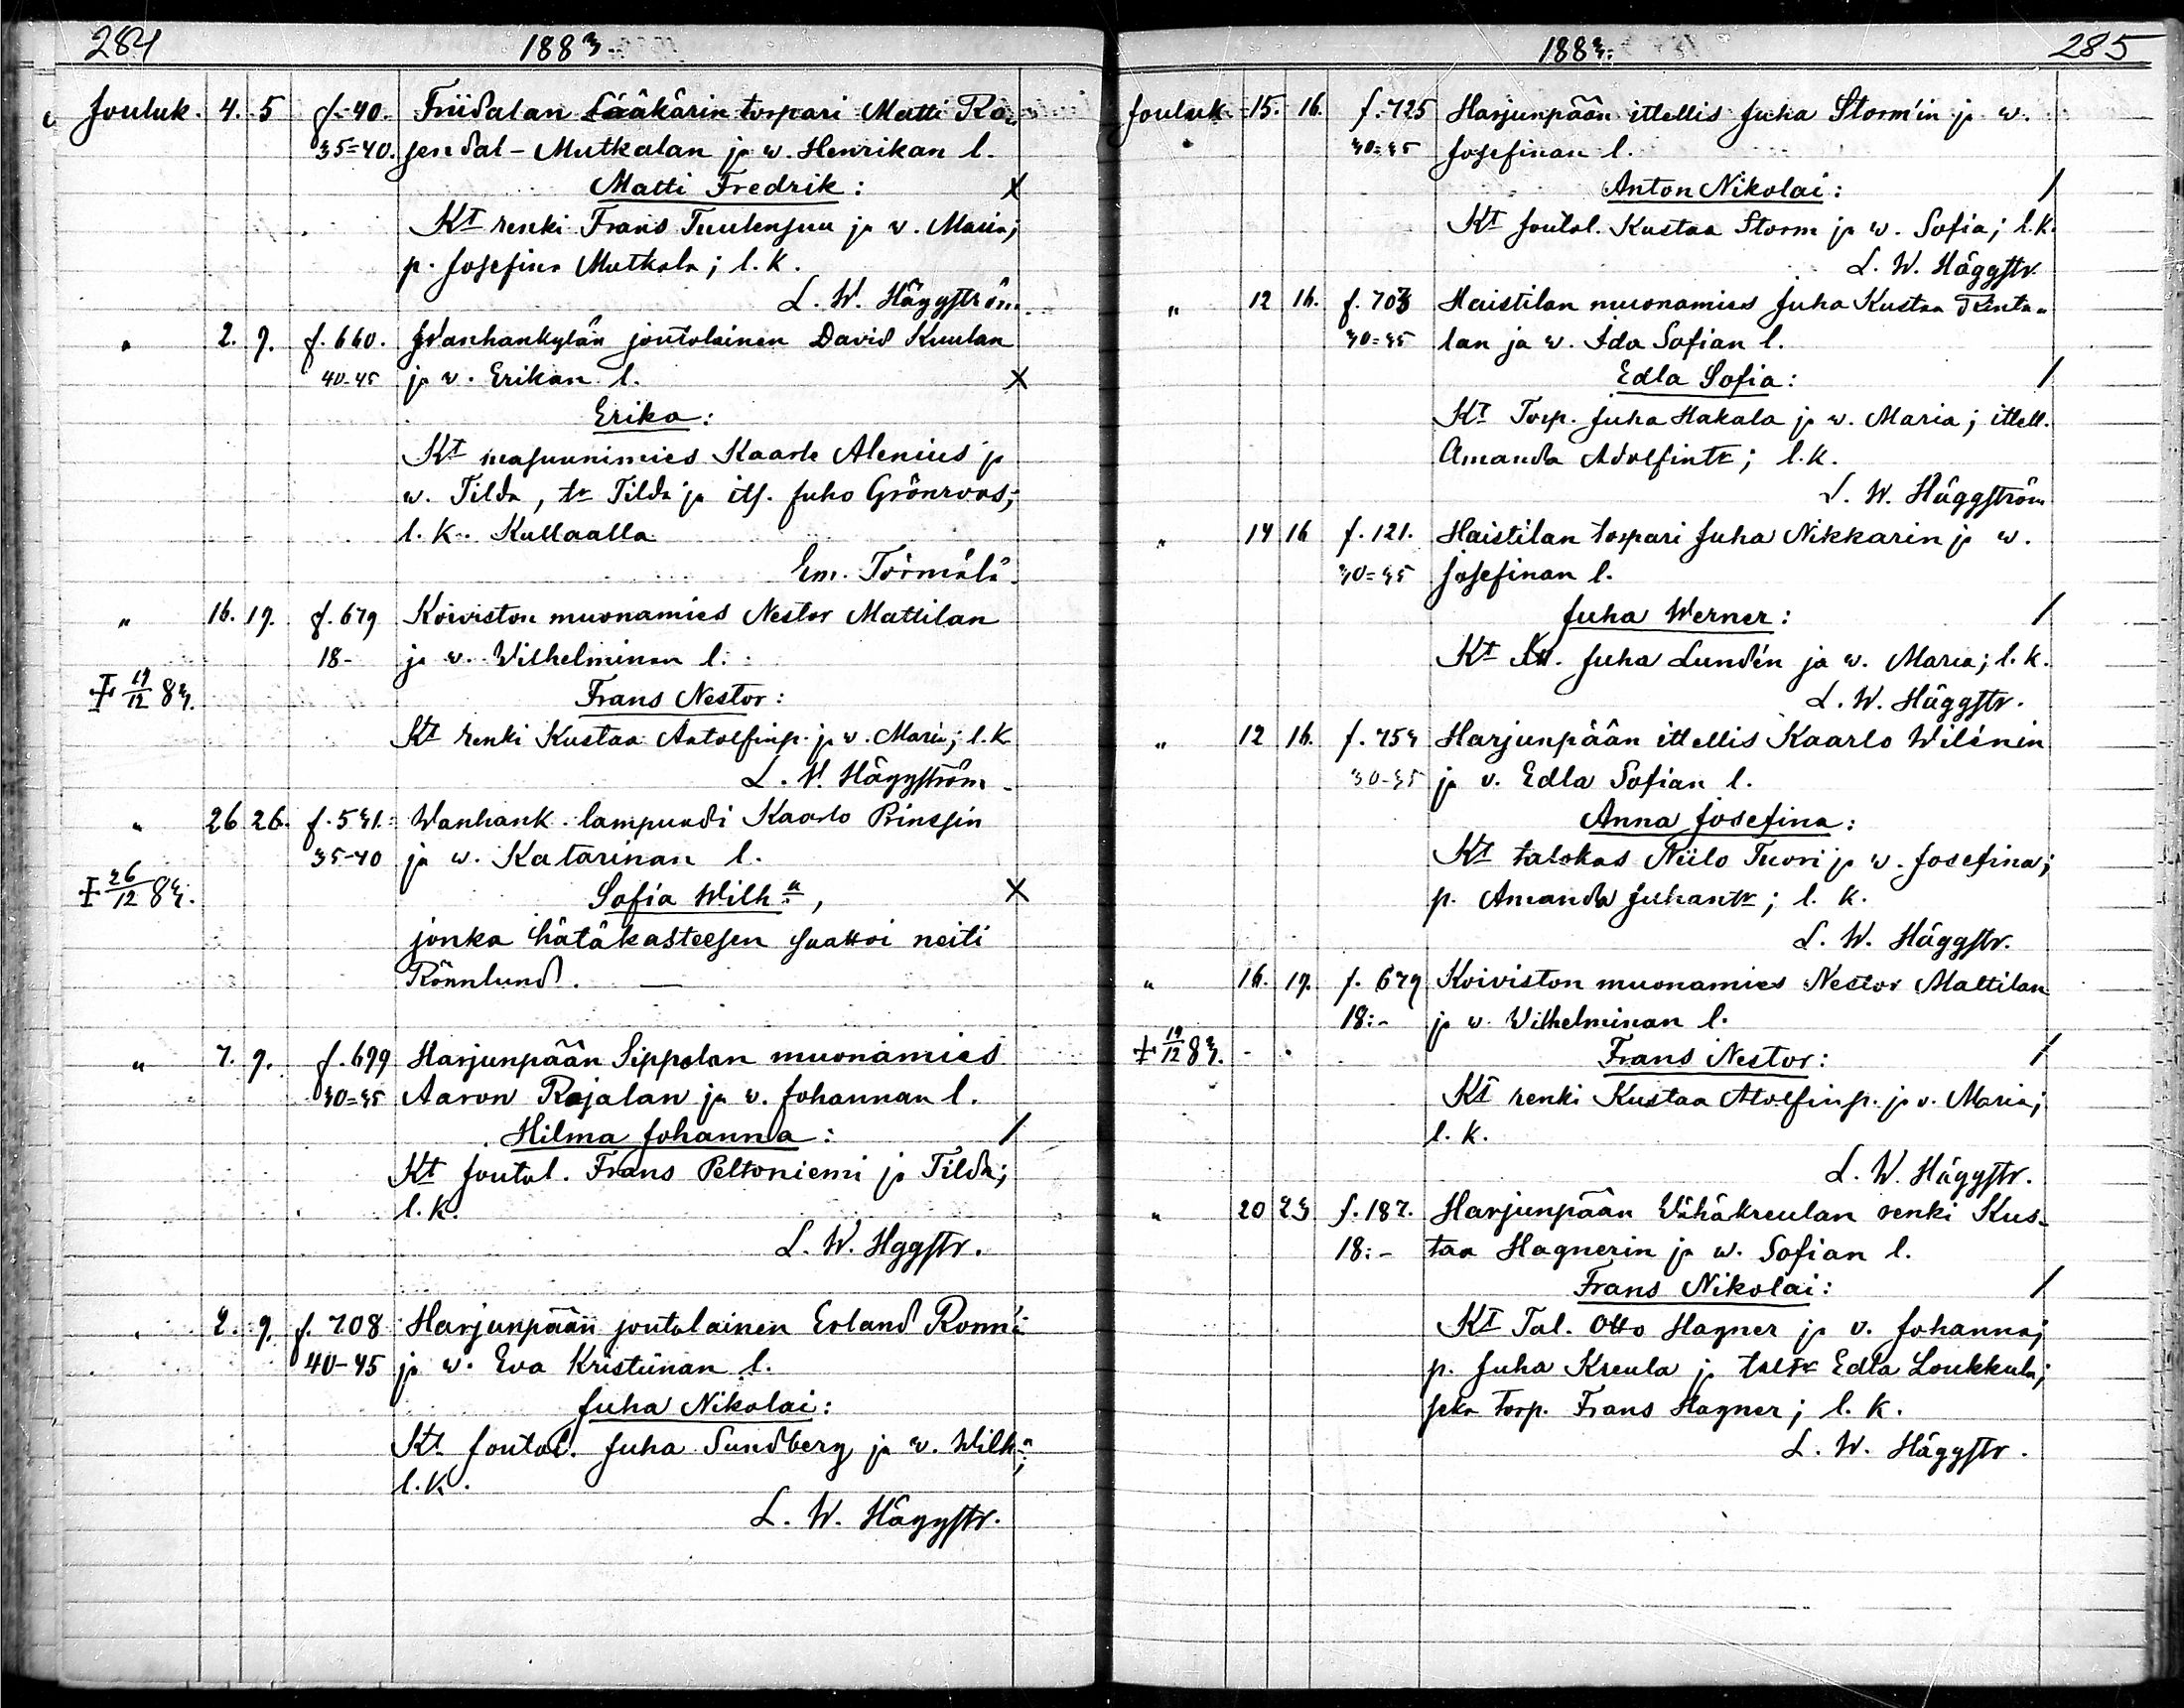 284 1883
Jouluk. 4. 5 f. 40. Friidalan Lääkärin torpari Matti Ro-
35-40. sendal-Mutkalan ja w. Henrikan l.
Matti Fredrik: X
Kt renki Frans Tuulensuu ja w. Maria;
p. Josefina Mutkala; l. k.
L. W. Häggström.
" 2. 9. f. 660. Wanhankylän joutolainen David Kuulan
40-45 ja w. Erikan l. X
Erika:
Kt masuunimies Kaarle Alenius ja
w. Tilda, tr Tilda ja its. Juho Grönroos;
l. k. Kullaalla
Em. Törmälä.
" 16. 19. f. 679 Koiviston muonamies Nestor Mattilan
18- ja w. Wilhelminan l.
‡ 19/12 83. Frans Nestor:
Kt renki Kustaa Antolfinp. ja w. Maria; l. k.
L. W. Häggström
" 26 26. f. 531. Wanhank. lampuodi Kaarlo Prinssin
35-40 ja w. Katarinan l.
‡ 26/12 83. Sofia Wilh:a, X
jonka hätäkasteesen saattoi neiti
Rönnlund.
" 7. 9. f. 699 Harjunpään Sippolan muonamies
30=35 Aaron Rajalan ja w. Johannan l.
Hilma Johanna: /
Kt Joutol. Frans Peltoniemi ja Tilda;
l. k.
L. W. Hggstr.
" 2. 9. f. 708 Harjunpään joutolainen Erland
40-45 ja w. Eva Kristiinan l.
Juha Nikolai:
Kt. Joutol. Juha Sundberg ja w. Wilh:a;
l. k.
L. W. Häggstr.
1883. 285
Jouluk. 15. 16. f. 725 Harjunpään ittellis Juha Storm'in ja w.
30=35 Josefinan l.
Anton Nikolai: /
Kt Joutol. Kustaa Storm ja w. Sofia; l. k.
L. W. Häggstr.
" 12 16. f. 703 Haistilan muonamies Juha Kustaa Rinta-
30=35 lan ja w. Ida Sofian l.
Edla Sofia: /
Kt Torp. Juha Hakala ja w. Maria; ittell.
Amanda Adolfintr; l. k.
L. W. Häggström
" 14 16 f. 121. Haistilan torpari Juha Nikkarin ja w.
30=35 Josefinan l.
Juha Werner: /
Kt Juha Lundén ja w. Maria; l. k.
L. W. Häggstr.
" 12 16. f. 753 Harjunpään ittellis Kaarlo Wilénin
30-35 ja v. Edla Sofian l.
Anna Josefina:
Kt talokas Niilo Tuori ja w. Josefina;
p. Amanda Juhantr; l. k.
L. W. Häggstr.
" 16. 19. f. 679 Koiviston muonamies Nestor Mattilan
18:- ja w. Wilhelminan l.
‡ 19/12 83. Frans Nestor: /
Kt renki Kustaa Atolfinp. ja v. Maria;
l. k.
L. W. Häggstr.
" 20 23 f. 187. Harjunpään Wähäkreulan renki Kus-
18:- taa Hagnerin ja w. Sofian l.
Frans Nikolai: /
Kt Tal. Otto Hagner ja v. Johanna;
p. Juha Kreula ja taltr Edla Loukkula;
seka Torp. Frans Hagner; l. k.
L. W. Häggstr.